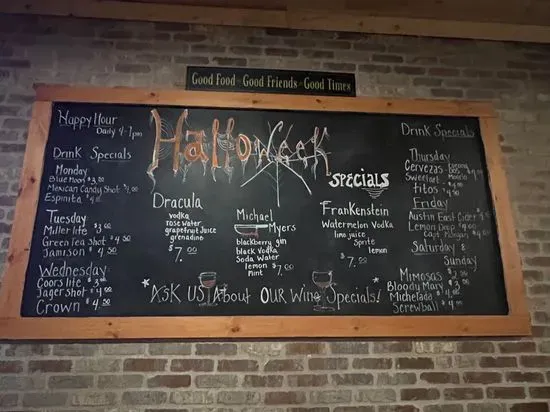 Good Food - Good Friends - Good Times
Happy Hour
Daily 4-7pm
Drink Specials
Monday
Blue Moon $3.00
Mexican Candy Shot
Espinita $4.00
Tuesday
Miller lite $3.00
Green Tea Shot $4.50
Jamison $4.50
Wednesday
Coors life $3.00
Jager shot $4.50
Crown $4.50
Halloweek
Specials
Dracula
vodka
rose water
grapefruit juice
grenadine
$7.00
Michael
Myers
blackberry gin
black Vodka
Soda Water
lemon
mint $7.00
Frankenstein
Watermelon Vodka
lime juice
Sprite
lemon
$7.00
Ask us About Our Wine Specials!
Drink Specials
Thursday
Cervezas
Sweetart
titos $4.50
Friday
Austin East Cider
Lemon Drop $4.00
Capt. Morgan $4.00
Saturday &
Sunday
Mimosas
Bloody Mary $3.00
Michelada $4.00
Screwball $4.50